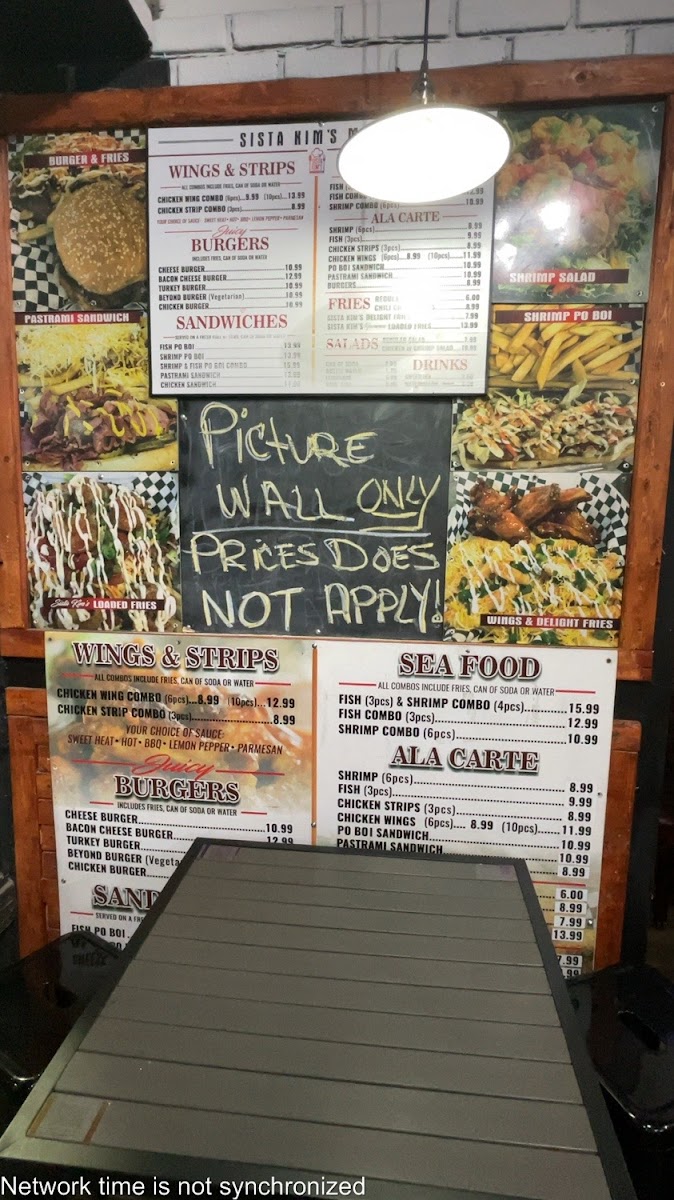 BURGER & FRIES
SISTA KIM'S
WINGS & STRIPS
ALL COMBOS INCLUDE FRIES, CAN OF SODA OR WATER
CHICKEN WING COMBO (6pcs)...9.99 (10pcs)...13.99
CHICKEN STRIP COMBO (3pcs)...8.99
YOUR CHOICE OF SAUCE: SWEET HEAT • HOT • BBQ • LEMON PEPPER • PARMESAN
Juicy
BURGERS
INCLUDES FRIES, CAN OF SODA OR WATER
CHEESE BURGER...10.99
BACON CHEESE BURGER...12.99
TURKEY BURGER...10.99
BEYOND BURGER (Vegetarian)...10.99
CHICKEN BURGER...10.99
SANDWICHES
FISH PO BOI
SHRIMP PO BOI
SHRIMP & FISH PO BOI COMBO
PASTRAMI SANDWICH
CHICKEN SANDWICH
SHRIMP COMBO (6pcs)
ALA CARTE
SHRIMP (6pcs)...8.99
FISH (3pcs)...9.99
CHICKEN STRIPS (3pcs)...8.99
CHICKEN WINGS (6pcs)...8.99 (10pcs)...11.99
PO BOI SANDWICH...10.99
PASTRAMI SANDWICH...10.99
BURGERS...8.99
FRIES
6.00
8.99
SISTA KIM'S DELIGHT FRIES...7.99
SISTA KIM'S LOADED FRIES...13.99
SALADS
DRINKS
SHRIMP SALAD
PASTRAMI SANDWICH
SHRIMP PO BOI
PICTURE
WALL ONLY
PRICES DOES
NOT APPLY!
Sista Kim's LOADED FRIES
WINGS & DELIGHT FRIES
WINGS & STRIPS
ALL COMBOS INCLUDE FRIES, CAN OF SODA OR WATER
CHICKEN WING COMBO (6pcs)...8.99 (10pcs)....12.99
CHICKEN STRIP COMBO (3pcs)...8.99
YOUR CHOICE OF SAUCE:
SWEET HEAT • HOT • BBQ • LEMON PEPPER • PARMESAN
Juicy
BURGERS
INCLUDES FRIES, CAN OF SODA OR WATER
CHEESE BURGER...10.99
BACON CHEESE BURGER...12.99
TURKEY BURGER
BEYOND BURGER
CHICKEN BURGER
SERVED ON A
FISH PO BOI
SEA FOOD
ALL COMBOS INCLUDE FRIES, CAN OF SODA OR WATER
FISH (3pcs) & SHRIMP COMBO (4pcs)...15.99
FISH COMBO (3pcs)...12.99
SHRIMP COMBO (6pcs)...10.99
ALA CARTE
SHRIMP (6pcs)...8.99
FISH (3pcs)...9.99
CHICKEN STRIPS (3pcs)...8.99
CHICKEN WINGS (6pcs).... 8.99 (10pcs)...11.99
PO BOI SANDWICH...10.99
PASTRAMI SANDWICH...10.99
8.99
6.00
8.99
7.99
13.99
7.99
Network time is not synchronized